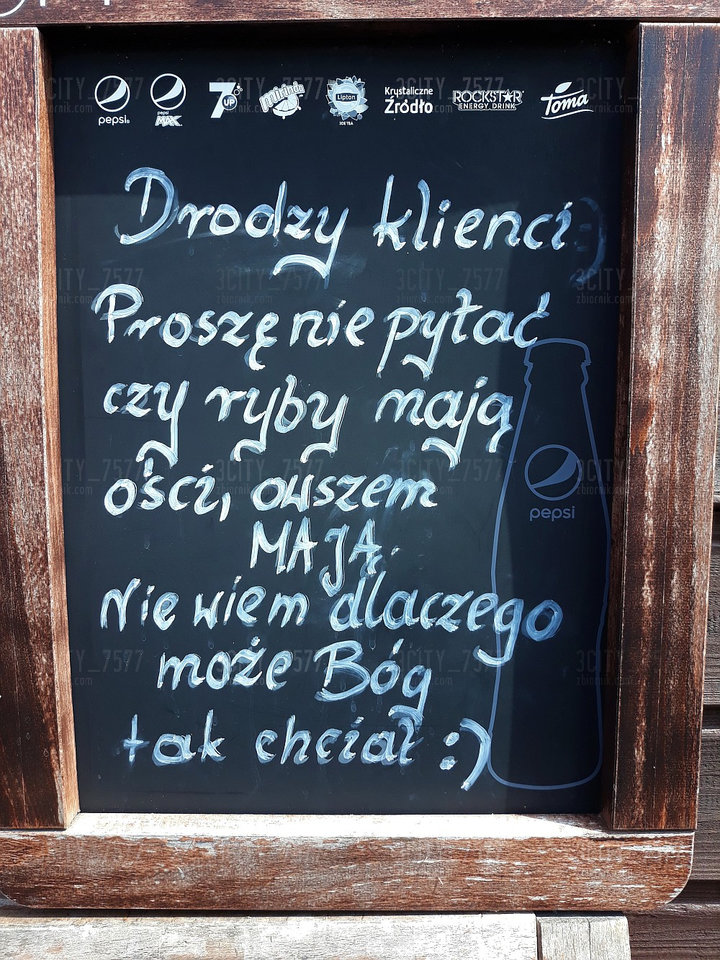 pepsi pepsi MAX 7UP Mirinda Lipton ICE TEA Krystaliczne Źródło ROCKSTAR ENERGY DRINK Toma
Drodzy klienci :)
Proszę nie pytać
czy ryby mają
ości, owszem
MAJĄ.
Nie wiem dlaczego
może Bóg
tak chciał :)
pepsi
3CITY_7577
zbiornik.com